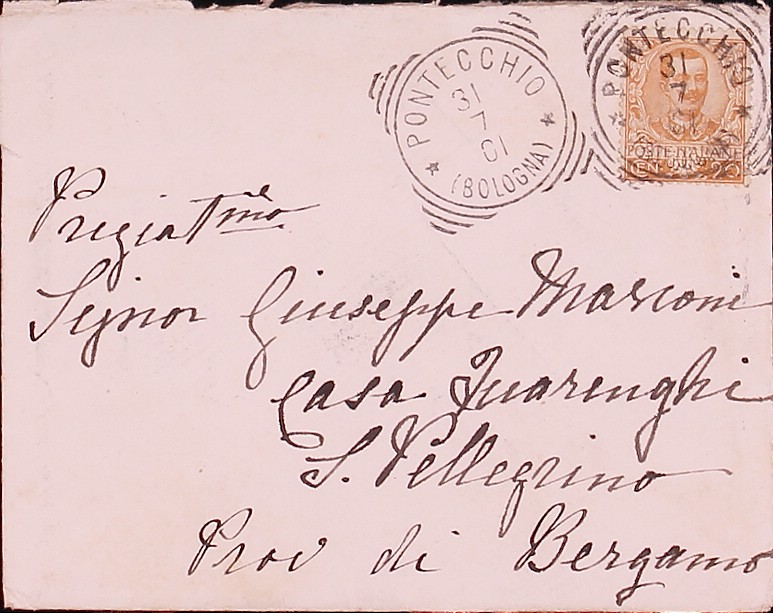 PONTECCHIO
31
7
01
(BOLOGNA)
PONTECCHIO
31
7
01
POSTE ITALIANE
CEN. 20
Pregiat.mo
Signor Giuseppe Marconi
Casa Quarenghi
S. Pellegrino
Prov di Bergamo